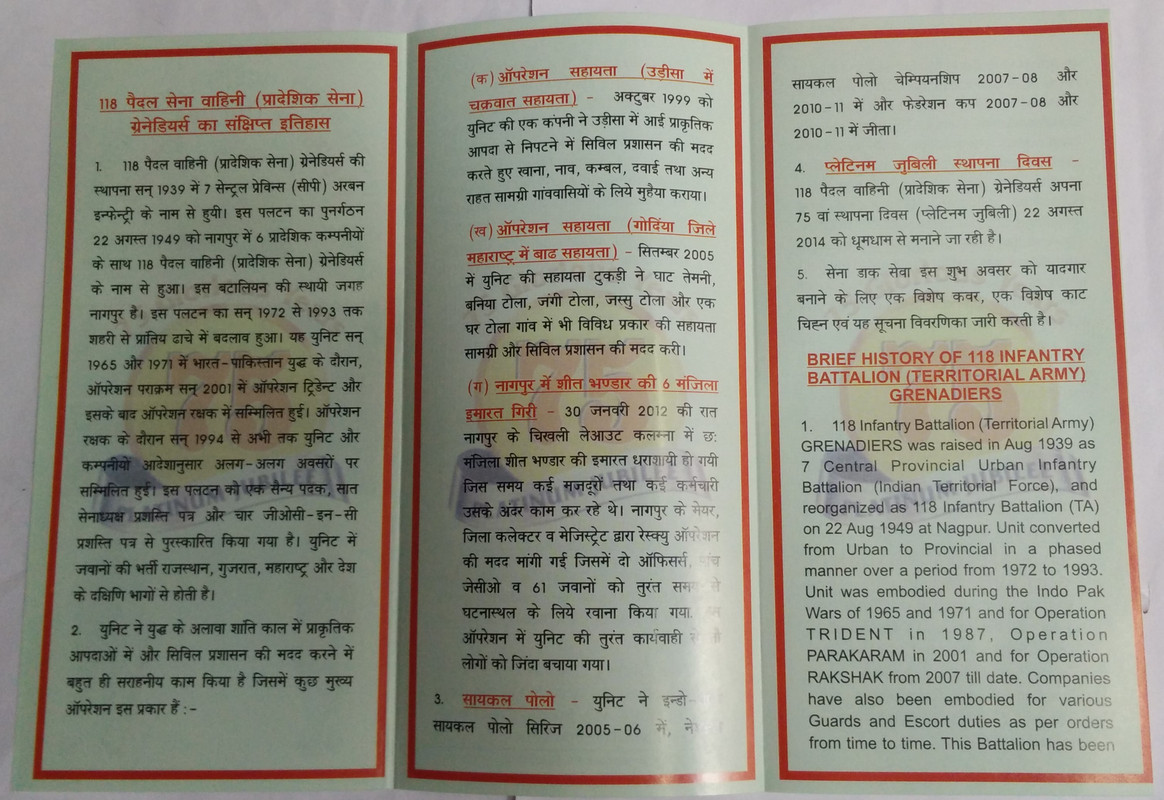 118 पैदल सेना वाहिनी (प्रादेशिक सेना)
ग्रेनेडियर्स का संक्षिप्त इतिहास
1. 118 पैदल वाहिनी (प्रादेशिक सेना) ग्रेनेडियर्स की
स्थापना सन् 1939 में 7 सेन्ट्रल प्रेविन्स (सीपी) अरबन
इन्फेन्ट्री के नाम से हुयी। इस पलटन का पुनर्गठन
22 अगस्त 1949 को नागपुर में 6 प्रादेशिक कम्पनीयों
के साथ 118 पैदल वाहिनी (प्रादेशिक सेना) ग्रेनेडियर्स
के नाम से हुआ। इस बटालियन की स्थायी जगह
नागपुर है। इस पलटन का सन् 1972 से 1993 तक
शहरी से प्रांतिय ढाचे में बदलाव हुआ। यह युनिट सन्
1965 और 1971 में भारत-पाकिस्तान युद्ध के दौरान,
ऑपरेशन पराक्रम सन् 2001 में ऑपरेशन ट्रिडेन्ट और
इसके बाद ऑपरेशन रक्षक में सम्मिलित हुई। ऑपरेशन
रक्षक के दौरान सन् 1994 से अभी तक युनिट और
कम्पनीयों आदेशानुसार अलग-अलग अवसरों पर
सम्मिलित हुई। इस पलटन को एक सैन्य पदक, सात
सेनाध्यक्ष प्रशस्ति पत्र और चार जीओसी-इन-सी
प्रशस्ति पत्र से पुरस्कारित किया गया है। युनिट में
जवानों की भर्ती राजस्थान, गुजरात, महाराष्ट्र और देश
के दक्षिणि भागों से होती है।
2. युनिट ने युद्ध के अलावा शांति काल में प्राकृतिक
आपदाओं में और सिविल प्रशासन की मदद करने में
बहुत ही सराहनीय काम किया है जिसमें कुछ मुख्य
ऑपरेशन इस प्रकार हैं :-
(क) ऑपरेशन सहायता (उड़ीसा में
चक्रवात सहायता) - अक्टुबर 1999 को
युनिट की एक कंपनी ने उड़ीसा में आई प्राकृतिक
आपदा से निपटने में सिविल प्रशासन की मदद
करते हुए खाना, नाव, कम्बल, दवाई तथा अन्य
राहत सामग्री गांववासियों के लिये मुहैया कराया।
(ख) ऑपरेशन सहायता (गोदिंया जिले
महाराष्ट्र में बाढ सहायता) - सितम्बर 2005
में युनिट की सहायता टुकड़ी ने घाट तेमनी,
बनिया टोला, जंगी टोला, जस्सु टोला और एक
घर टोला गांव में भी विविध प्रकार की सहायता
सामग्री और सिविल प्रशासन की मदद करी।
(ग) नागपुर में शीत भण्डार की 6 मंजिला
इमारत गिरी - 30 जनवरी 2012 की रात
नागपुर के चिखली लेआउट कलम्ना में छ:
मंजिला शीत भण्डार की इमारत धराशायी हो गयी
जिस समय कई मजदूरों तथा कई कर्मचारी
उसके अंदर काम कर रहे थे। नागपुर के मेयर,
जिला कलेक्टर व मेजिस्ट्रेट द्वारा रेस्क्यु ऑपरेशन
की मदद मांगी गई जिसमें दो ऑफिसर्स,
जेसीओ व 61 जवानों को तुरंत से
घटनास्थल के लिये रवाना किया गया.
ऑपरेशन में युनिट की तुरंत कार्यवाही
लोगों को जिंदा बचाया गया।
3. सायकल पोलो - युनिट ने इन्डो-
सायकल पोलो सिरिज 2005-06 में,
सायकल पोलो चेम्पियनशिप 2007-08 और
2010-11 में और फेडरेशन कप 2007-08 और
2010-11 में जीता।
4. प्लेटिनम जुबिली स्थापना दिवस -
118 पैदल वाहिनी (प्रादेशिक सेना) ग्रेनेडियर्स अपना
75 वां स्थापना दिवस (प्लेटिनम जुबिली) 22 अगस्त
2014 को धूमधाम से मनाने जा रही है।
5. सेना डाक सेवा इस शुभ अवसर को यादगार
बनाने के लिए एक विशेष कवर, एक विशेष काट
चिह्न एवं यह सूचना विवरणिका जारी करती है।
BRIEF HISTORY OF 118 INFANTRY
BATTALION (TERRITORIAL ARMY)
GRENADIERS
1. 118 Infantry Battalion (Territorial Army)
GRENADIERS was raised in Aug 1939 as
7 Central Provincial Urban Infantry
Battalion (Indian Territorial Force), and
reorganized as 118 Infantry Battalion (TA)
on 22 Aug 1949 at Nagpur. Unit converted
from Urban to Provincial in a phased
manner over a period from 1972 to 1993.
Unit was embodied during the Indo Pak
Wars of 1965 and 1971 and for Operation
TRIDENT in 1987, Operation
PARAKARAM in 2001 and for Operation
RAKSHAK from 2007 till date. Companies
have also been embodied for various
Guards and Escort duties as per orders
from time to time. This Battalion has been